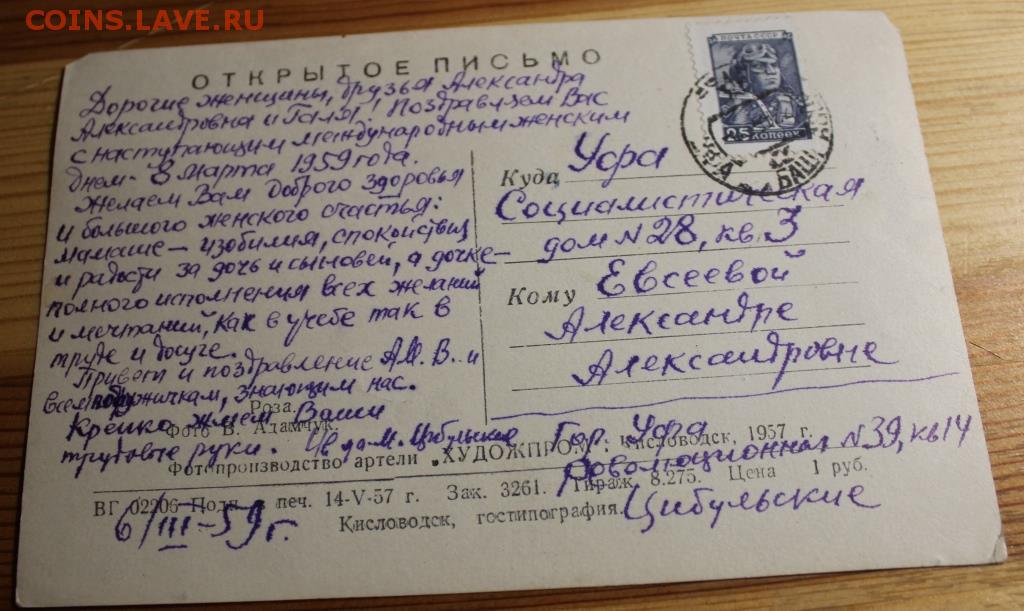 COINS.LAVE.RU
ОТКРЫТОЕ ПИСЬМО
ПОЧТА СССР
25 КОПЕЕК
УФА БАШ
Дорогие женщины, друзья Александра
Александровна и Галя! Поздравляем Вас
с наступающим международным женским
днем - 8 марта 1959 года.
Желаем Вам доброго здоровья
и большого женского счастья:
мамаше - изобилия, спокойствия
и радости за дочь и сыновей, а дочке -
полного исполнения всех желаний
и мечтаний, как в учебе так в
труде и досуге.
Привет и поздравление А.М.В. и
всем подружичкам, знающим нас.
Крепко жмем Ваши
трудовые руки. М. Цибульские
6/III-59 г.
Куда Уфа
Социалистическая
дом N 28, кв. 3
Кому Евсеевой
Александре
Александровне
Гор. Уфа
Революционная N 39, кв 14
Цибульские
Роза.
Фото В. Адамчук.
Фотопроизводство артели „ХУДОЖПРОМ“ Кисловодск, 1957 г.
ВГ 02206 Подп. к печ. 14-V-57 г. Зак. 3261. Тираж 8.275. Цена 1 руб.
Кисловодск, гостипография.